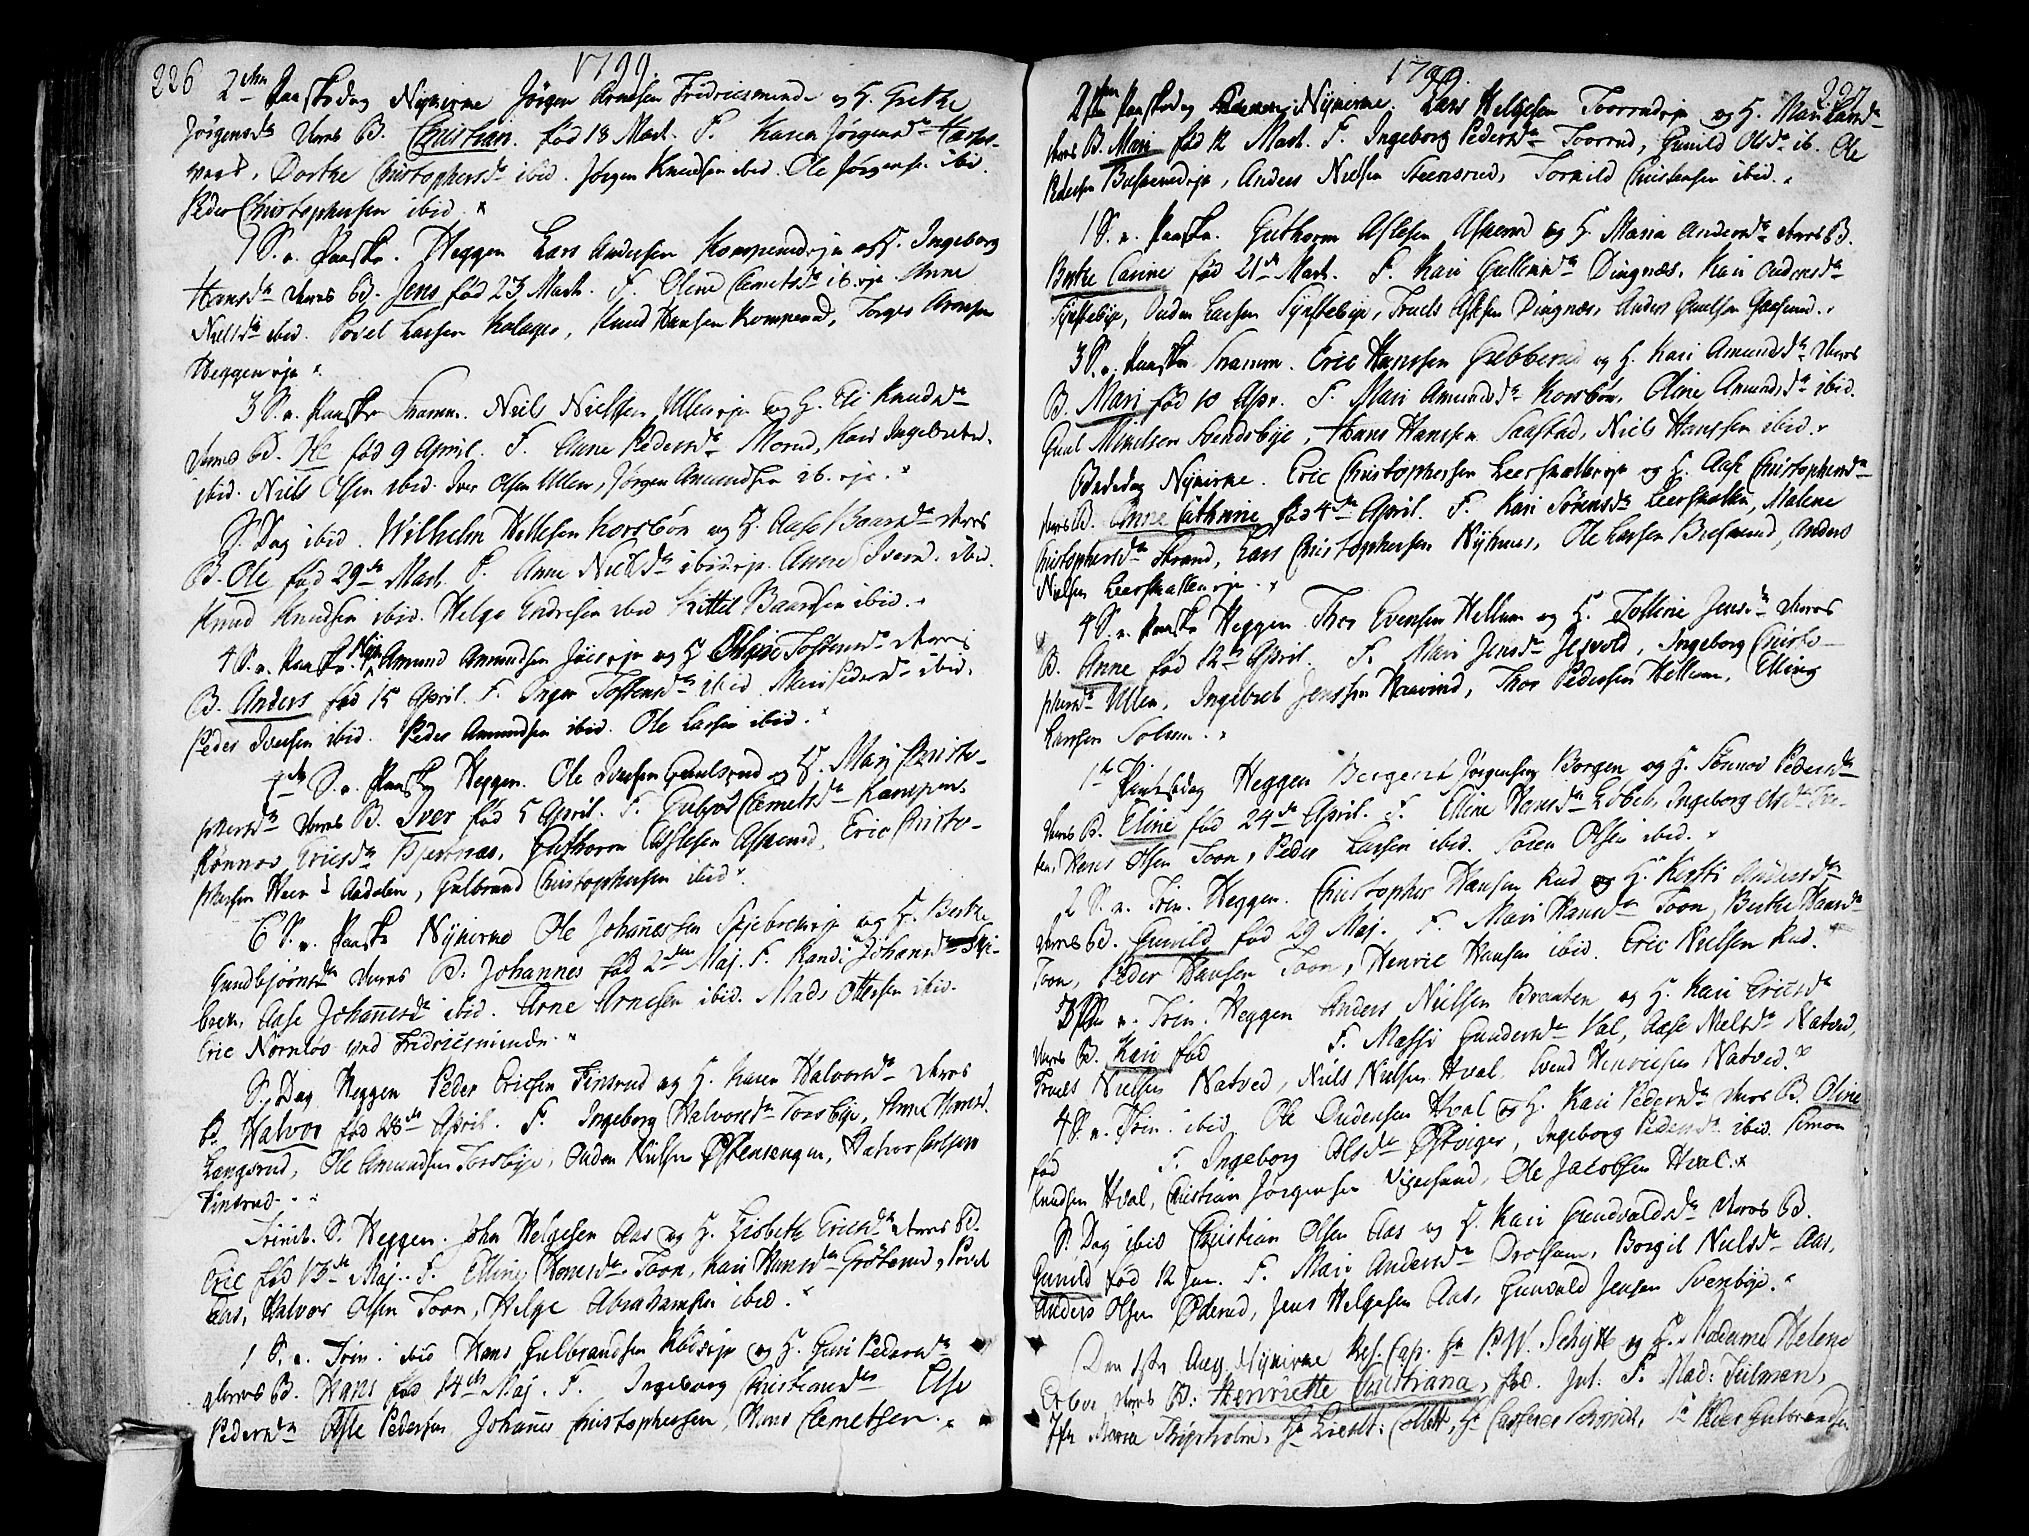 226 1799
2den Paaskedag Nykirke Jörgen Arnesen Fredricsminde og H. Grethe
Jörgensdr deres B. Christian. fød 18 Mart. F. Karen Jörgensdr
Dorthe Christophersdr ibid. Jörgen Knudsen ibid. Ole Jörgens. ibid.
Peder Christophersen ibid.
1 S. e. Paaske. Heggen Lars Andersen Kompeneje og H. Ingeborg
Hansdr deres B. Jens fød 23 Mart. F. Oline Clemetsdr ib. eje Anne
Nielsdr ibid. Povel Larsen Kolager, Knud Hansen Kompend, Torger Arnesen
Heggen eje
3 S. e. Paaske Snarum. Niels Nielsen Ulleneje og H. Eli Knudsdr
deres B. Ole fød 9 April. F. Anne Pedersdr Morud, Kari Ingebretsd.
ibid. Niels Olsen ibid. Iver Olsen Ullen, Jörgen Amundsen ib. eje.
S. Dag ibid. Wilhelm Hellesen Korsbön og H. Aase Baarsdr deres
B. Ole fød 29de Mart. F. Anne Nielsdr ibid. eje. Anne Iversd. ibid.
Knud Knudsen ibid. Helge Endresen ibid Kittil Baardsen ibid.
4 S. e. Paaske Nyk. Amund Amundsen eje og H. Tostensdr deres
B. Anders fød 15 April. F. Inger Tostensdr ibid Mari Pedersdr ibid.
Peder Iversen ibid. Peder Amundsen ibid. Ole Larsen ibid.
S. e. Paaske Heggen. Ole Iversen Gaulsrud og H. Mari Christo-
phersdr deres B. Iver fød 5 April. F. Clemetsdr Kampen.
Rönnov Ericsdr Guthorm Aslesen Askerud, Eric Christo-
phersen Heen i Aadalen, Gulbrand Christophersen ibid.
6 S. e. Paaske Nykirke Ole Johannessen Skjebreckeje og H. Berthe
Gundbjörnsdr deres B. Johannes fød 2den Maj. F. Randi Johansdr Skje-
breck, Aase Johannesdr ibid. Arne Arnesen ibid. Mads Ottersen ibid.
Eric Nornlös ved Fredricsminde.
S. Dag Heggen Peder Ericsen Finsrud og H. Karen Halvorsdr deres
B. Halvor fød 28de April. F. Ingeborg Halvorsdr Foosbye, Anne Hansd.
Langsrud, Ole Amundsen Foosbye, Ouden Nielsen Östensengen, Halvor Carlsen
Finsrud.
Trinit. S. Heggen. John Helgesen Aas og H. Lisbeth Ericsdr deres B.
Eric fød 13de Maj. F. Elline Hansdr Toon, Kari Hansdr Gröterud, Povel
Aas, Halvor Olsen Toon, Helge Abrahamsen ibid.
1 S. e. Trin. ibid Hans Gulbrandsen Rudseje og H. Guri Pedersdr
deres B. Hans fød 14de Maj. F. Ingeborg Christiansdr Else
Pedersdr Asle Pedersen Johannes Christophersen, Hans Clemetsen.
1799. 227
2den Paaskedag Nykirke. Lars Helgesen Toorrudeje og H. Mari
deres B. Mari fød 12 Mart. F. Ingeborg Pedersdr Toorrud, Gunild Olsdr ib. Ole
Pedersen Buskerudeje, Anders Nielsen Steensrud, Tornild Christensen ibid.
1 S. e. Paaske. Guthorm Aslesen Askerud og H. Maria Andersdr deres B.
Berthe Carine fød 21de Mart. F. Kari Gullichsdr Dingnæs, Kari Oudensdr
Tyrstebye, Ouden Larsen Tyrstebye, Truels Aslesen Dingnæs, Anders Gaulsen
3 S. e. Paaske Snarum. Eric Hansen Gubberud og H. Kari Amundsdr deres
B. Mari fød 10 Apr. F. Mari Amundsdr Korsbön, Oline Amundsdr ibid.
Gaul Mikelsen Svendsbye, Hans Hanssen Saastad, Niels Hanssen ibid.
Bededag Nykirke. Eric Christophersen Leerskalleneje og H. Aase Christophersdr
deres B. Anne Cathrine fød 4de April. F. Kari Sörensdr Leerskallen, Malene
Christophersdr Strand, Lars Christophersen Nykirke, Ole Larsen Buskerud, Anders
Nielsen Leerskalleneje.
4 S. e. Paaske Heggen Thor Evensen Hellum og H. Jensdr deres
B. Anne fød 12te April. F. Mari Jensdr Ingeborg Christo-
phersdr Ullen, Ingebret Jenssen Haavind, Thor Pedersen Hellum, Elling
Larssen Solum.
1te Pintsedag Heggen Jörgensen Borgen og H. Sönnov Pedersdr
deres B. Eline fød 24de April. F. Eline Hansdr Ingeborg Elsdr
Hans Olsen Toon, Peder Larsen ibid. Sören Olsen ibid.
2 S. e. Trin. Heggen. Christopher Hansen Rud og H. Kirsti Andersdr
deres B. Gunild fød 29 Maj. F. Mari Hansdr Toon, Berthe Hansdr
Toon, Peder Hansen Toon, Henric Hansen ibid. Eric Nielsen Rud.
3 S. e. Trin. Heggen Anders Nielsen Braaten og H. Kari Ericsdr
deres B. Kari fød F. Massi Gundersdr Val, Aase Nielsdr Natved,
Truels Nielsen Natved, Niels Nielsen Hval, Svend Henricsen Natved.
4 S. e. Trin. ibid. Ole Oudensen Hval og H. Kari Pedersdr deres B. Oline
fød F. Ingeborg Olsdr Östviger, Ingeborg Pedersdr ibid. Simon
Knudsen Hval, Christian Jörgensen Vigersund, Ole Jacobsen Hval.
S. Dag ibid Christian Olsen Aas og H. Kari Gundvaldsdr deres B.
Gunild fød 12 Jun. F. Mari Andersdr Drolsum, Borgil Nielsdr Aas,
Anders Olsen Öderud, Jens Helgesen Aas, Gunvald Jensen Svenbye.
Den 1ste Aug. Nykirke Res. Cap. Hr P. W. Schytt og H. Madame Helene
deres B: Henriette Christiana, fød. Jul: F. Mad: Tillman,
Jfr Maria Hr Lieut: Collett, Hr Peder Gulbrandsen